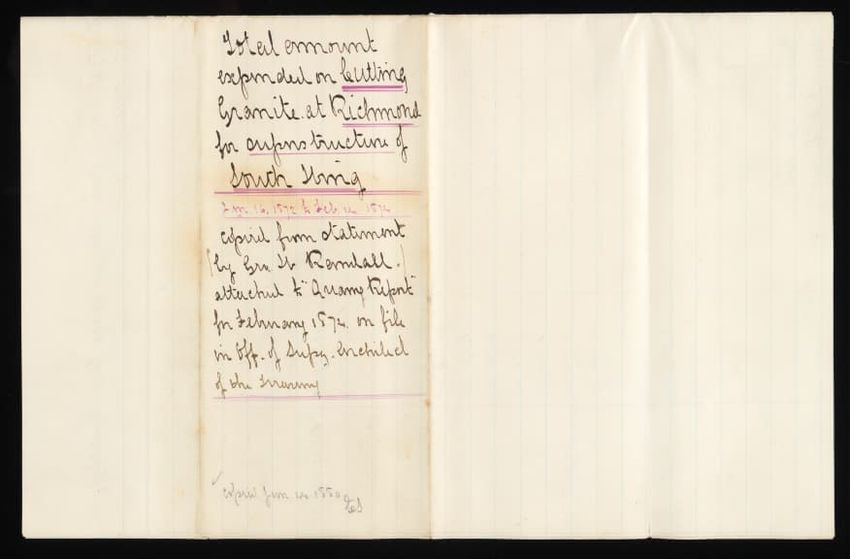 Total amount
expended on Cutting
Granite at Richmond
for superstructure of
South Wing
16, 1872 to Feb. 1874
copied from statement
(by Geo. W Randall.)
attached to "Quarry Report"
for February 1874. on file
in Off. of Supg. Architect
of the Treasury
copied Jan 1880